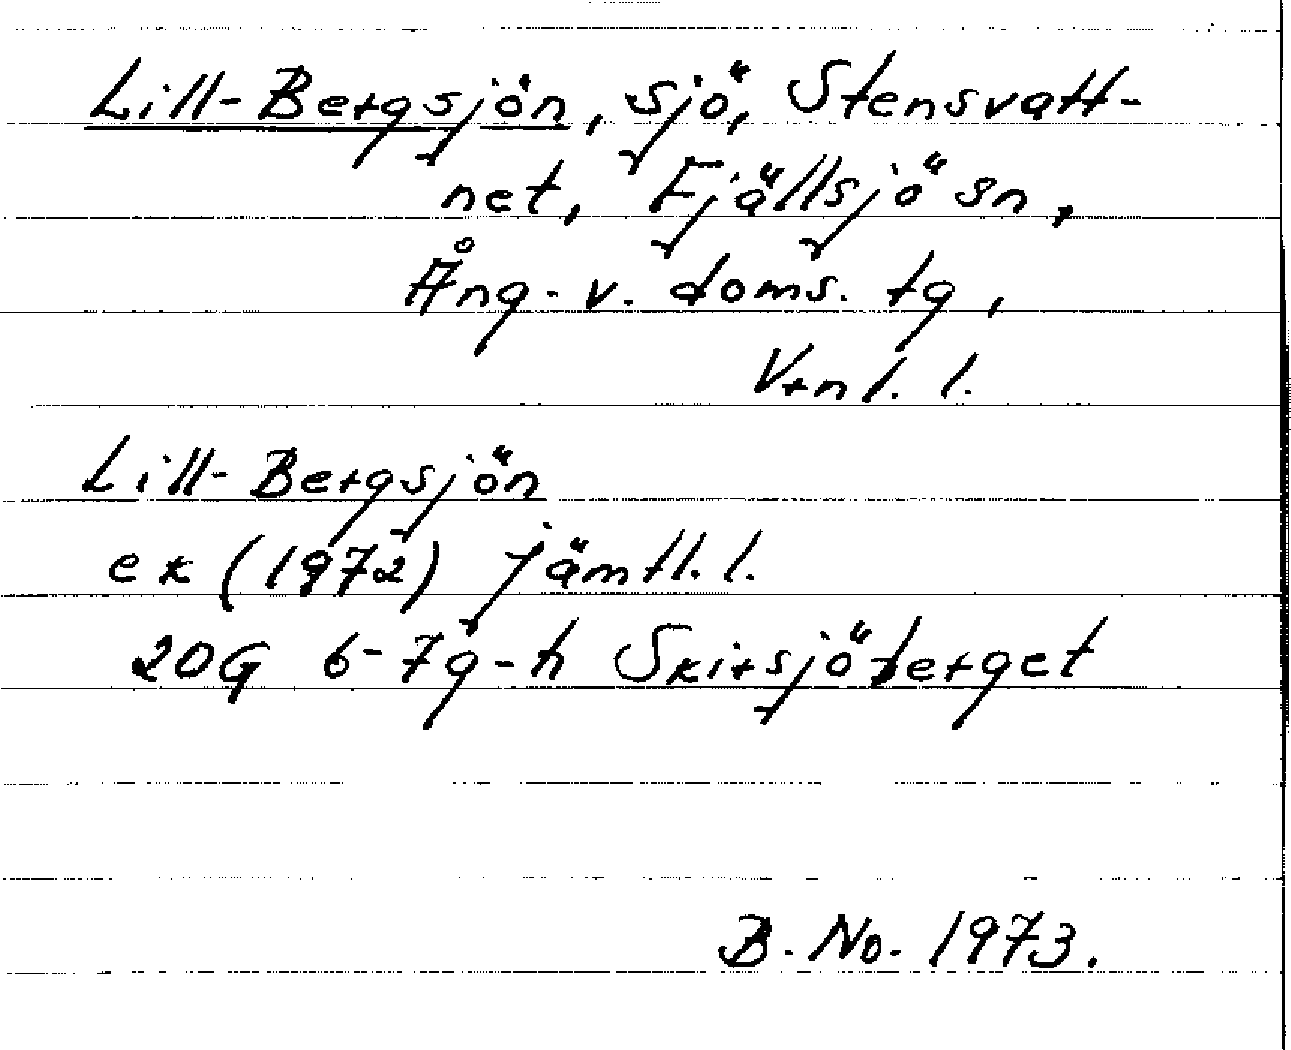 Lill-Bergsjön, sjö, Stensvatt-
net, Fjällsjö sn,
Ång-v. doms. tg,
Vrnl. l.
Lill-Bergsjön
ek (1972) jämtl. l.
20G 6-7g-h Skirsjöberget
B. No. 1973.